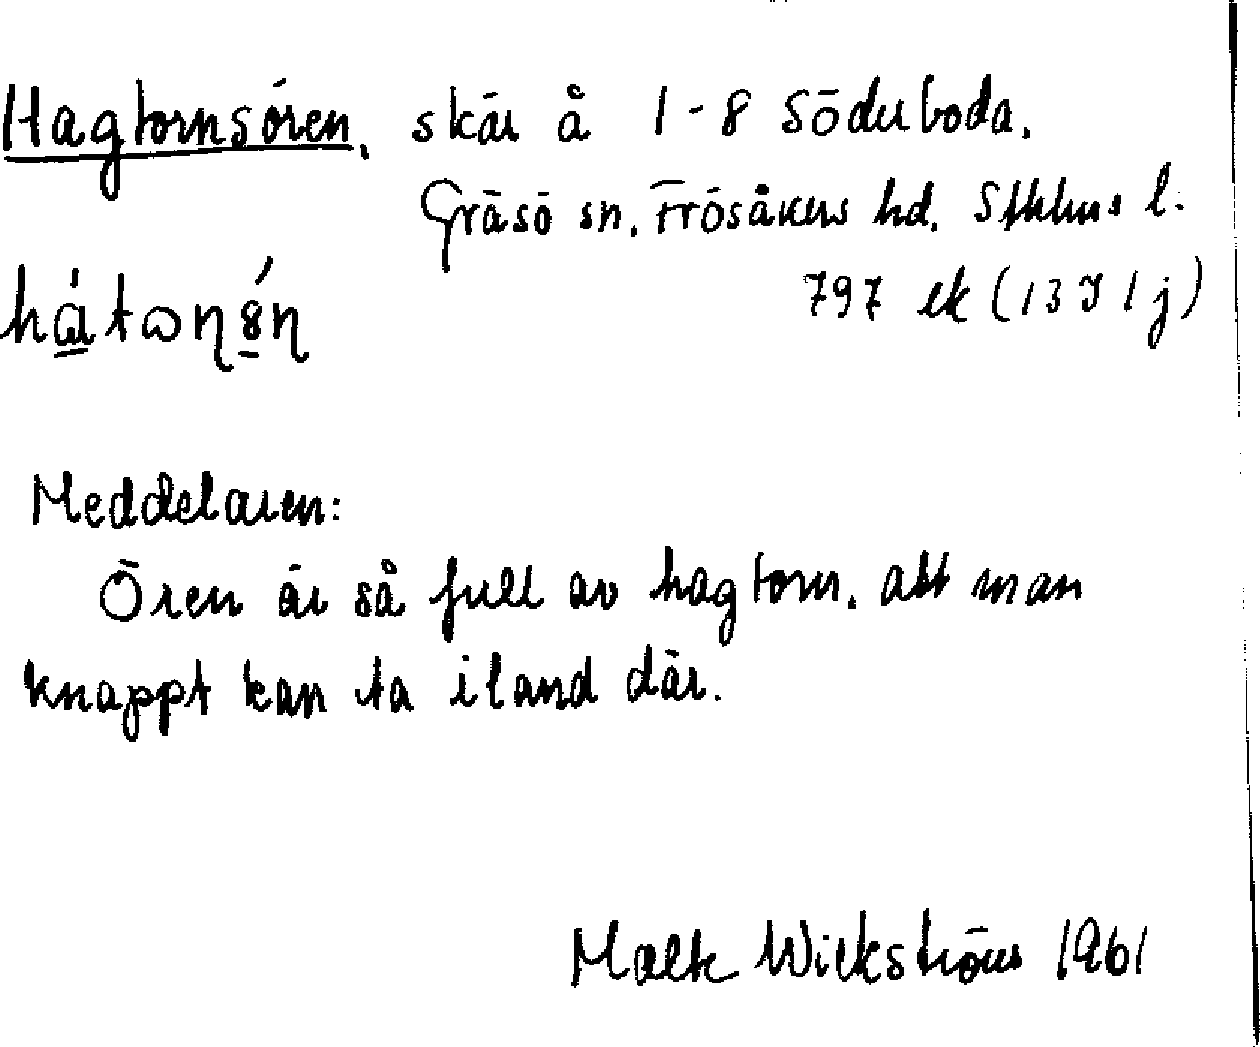 Hagtornsören, skär å 1-8 Söderboda,
Gräsö sn, Frösåkers hd, Sthlms l.
797 ek (13 I 1 j)
Meddelaren:
Ören är så full av hagtorn, att man
knappt kan ta iland där.
Malte Wickström 1961